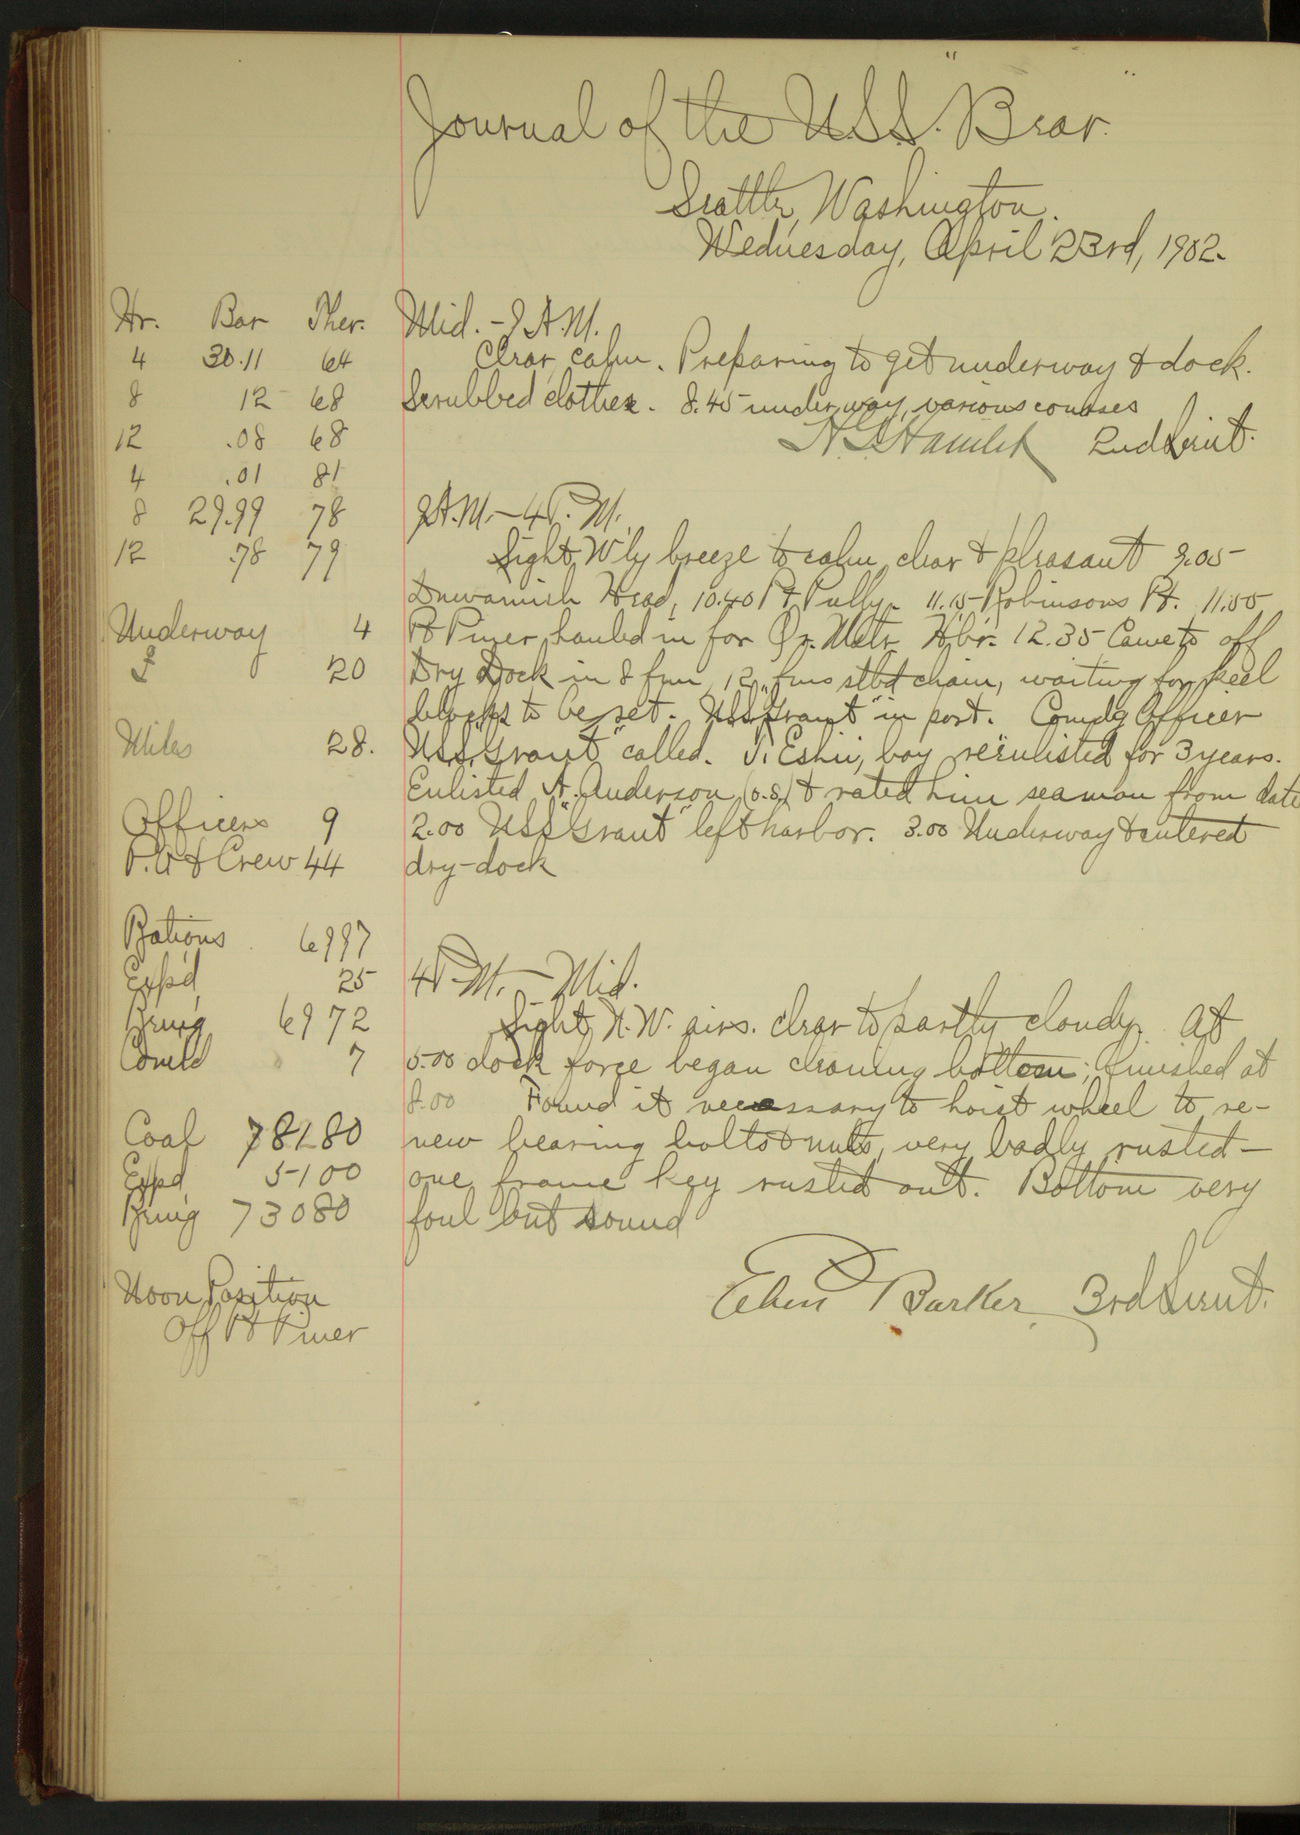 Journal of the U.S.S. "Bear"
Seattle, Washington.
Wednesday, April 23rd, 1902.
Hr. Bar Ther.
4 30.11 64
8 12 68
12 .08 68
4 .01 81
8 29.99 78
12 .78 79
Underway 4
20
Miles 28.
Officers 9
P.O & Crew 44
Rations 6997
Exp'd 25
Remg 6972
7
Coal 78180
Expd 5100
Remg 73080
Noon Position
Off Pt Piner
Mid. - 9 A.M.
Clear, calm. Preparing to get underway & dock.
Scrubbed clothes. 8.45 underway, various courses
H G Hamlet 2nd Lieut.
9 A.M. - 4 P.M.
Light W'ly breeze to calm, clear & pleasant 9.05
Duwamish Head, 10.40 Pt Pully. 11.15 Robinsons Pt. 11.55
Pt Piner, hauled in for Qr. Mstr Hbr. 12.35 Came to off
Dry Dock in 8 fms, 12 fms stbd chain, waiting for keel
blocks to be set. U.S.S. "Grant" in port. Comdg Officer
U.S.S. "Grant" called. T. Eshii, boy reënlisted for 3 years.
Enlisted A. Anderson (O.S.) & rated him seaman from date
2.00 U.S.S. "Grant" left harbor. 3.00 Underway & entered
dry-dock
4 P.M. - Mid.
Light N.W. airs. clear to partly cloudy. At
5.00 dock force began cleaning bottom; finished at
8.00 Found it necessary to hoist wheel to re-
new bearing bolts & nuts, very badly rusted -
one frame key rusted out. Bottom very
foul but sound
Eben Barker 3rd Lieut.